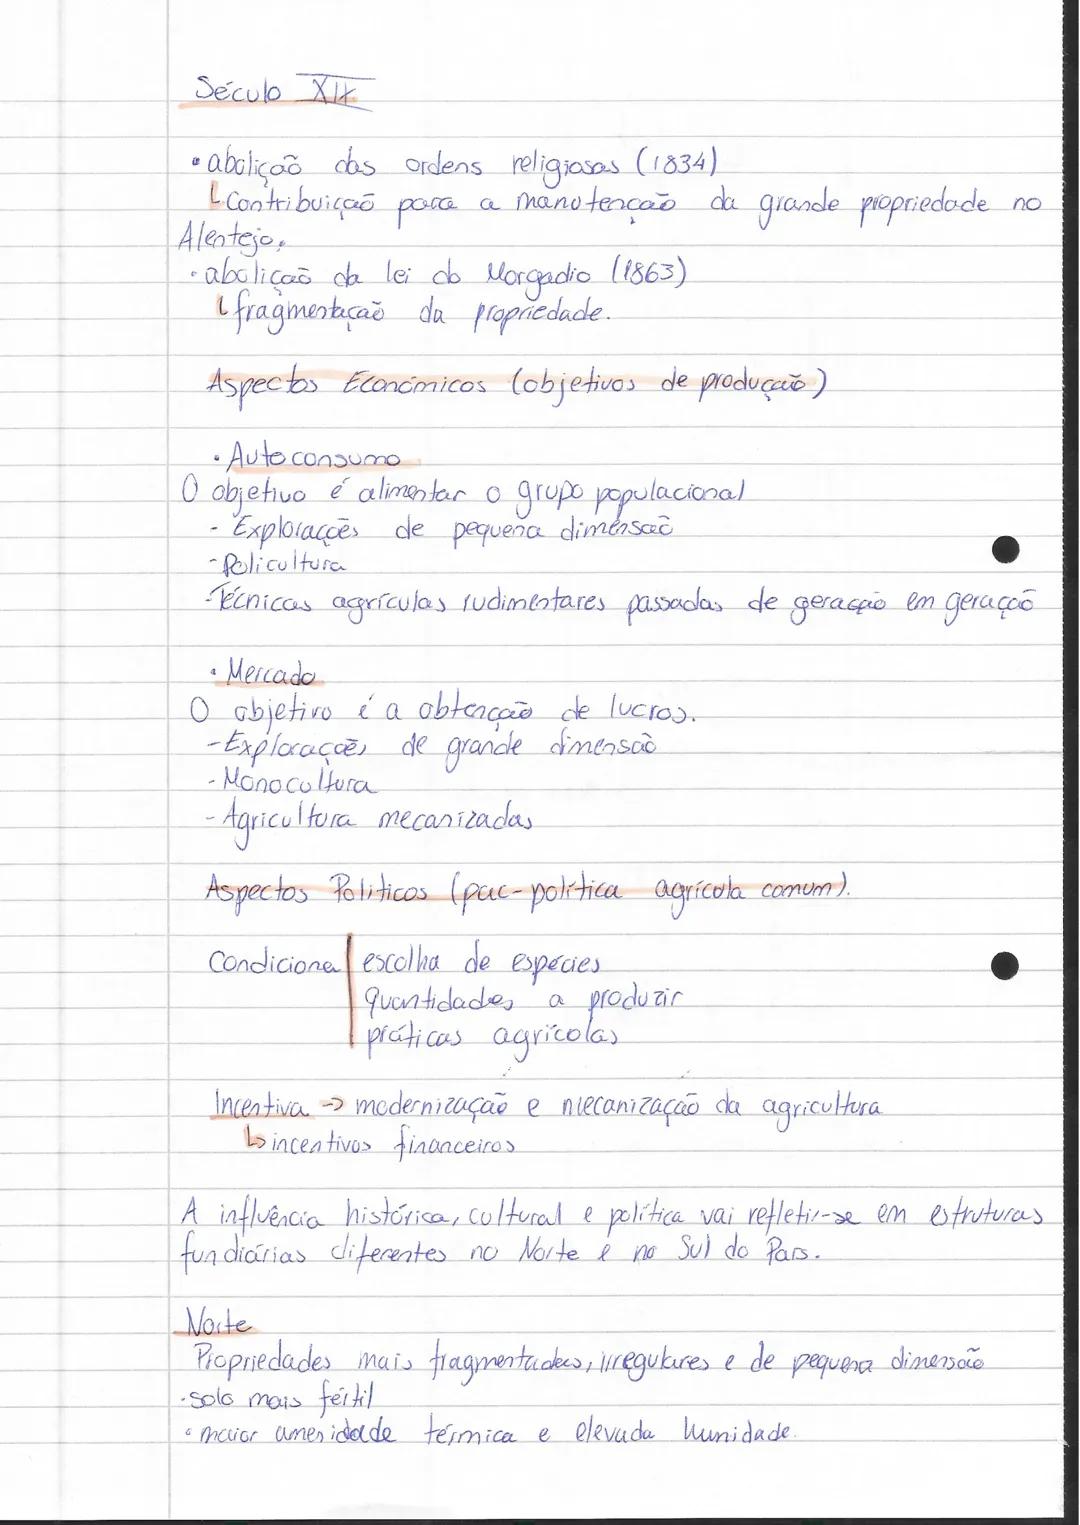 Século XIX
• abolição das ordens religiosas (1834)
↳ Contribuição para a manutenção da grande propriedade no
Alentejo.
• abolição da lei do Morgadio (1863)
↳ fragmentação da propriedade.
Aspectos Económicos (objetivos de produção)
• Autoconsumo
O objetivo é alimentar o grupo populacional
- Explorações de pequena dimensão
- Policultura
- Técnicas agrículas rudimentares passadas de geração em geração
• Mercado
O objetivo é a obtenção de lucros.
- Explorações de grande dimensão
- Monocultura
- Agricultura mecanizadas
Aspectos Politicos (pac-política agrícola comum).
Condiciona | escolha de espécies
quantidades a produzir
práticas agrícolas
Incentiva → modernização e mecanização da agricultura
↳ incentivos financeiros
A influência histórica, cultural e política vai refletir-se em estruturas
fundiárias diferentes no Norte e no Sul do País.
Norte
Propriedades mais fragmentadas, irregulares e de pequena dimensão
• solo mais fértil
• maior amenidade térmica e elevada humidade.